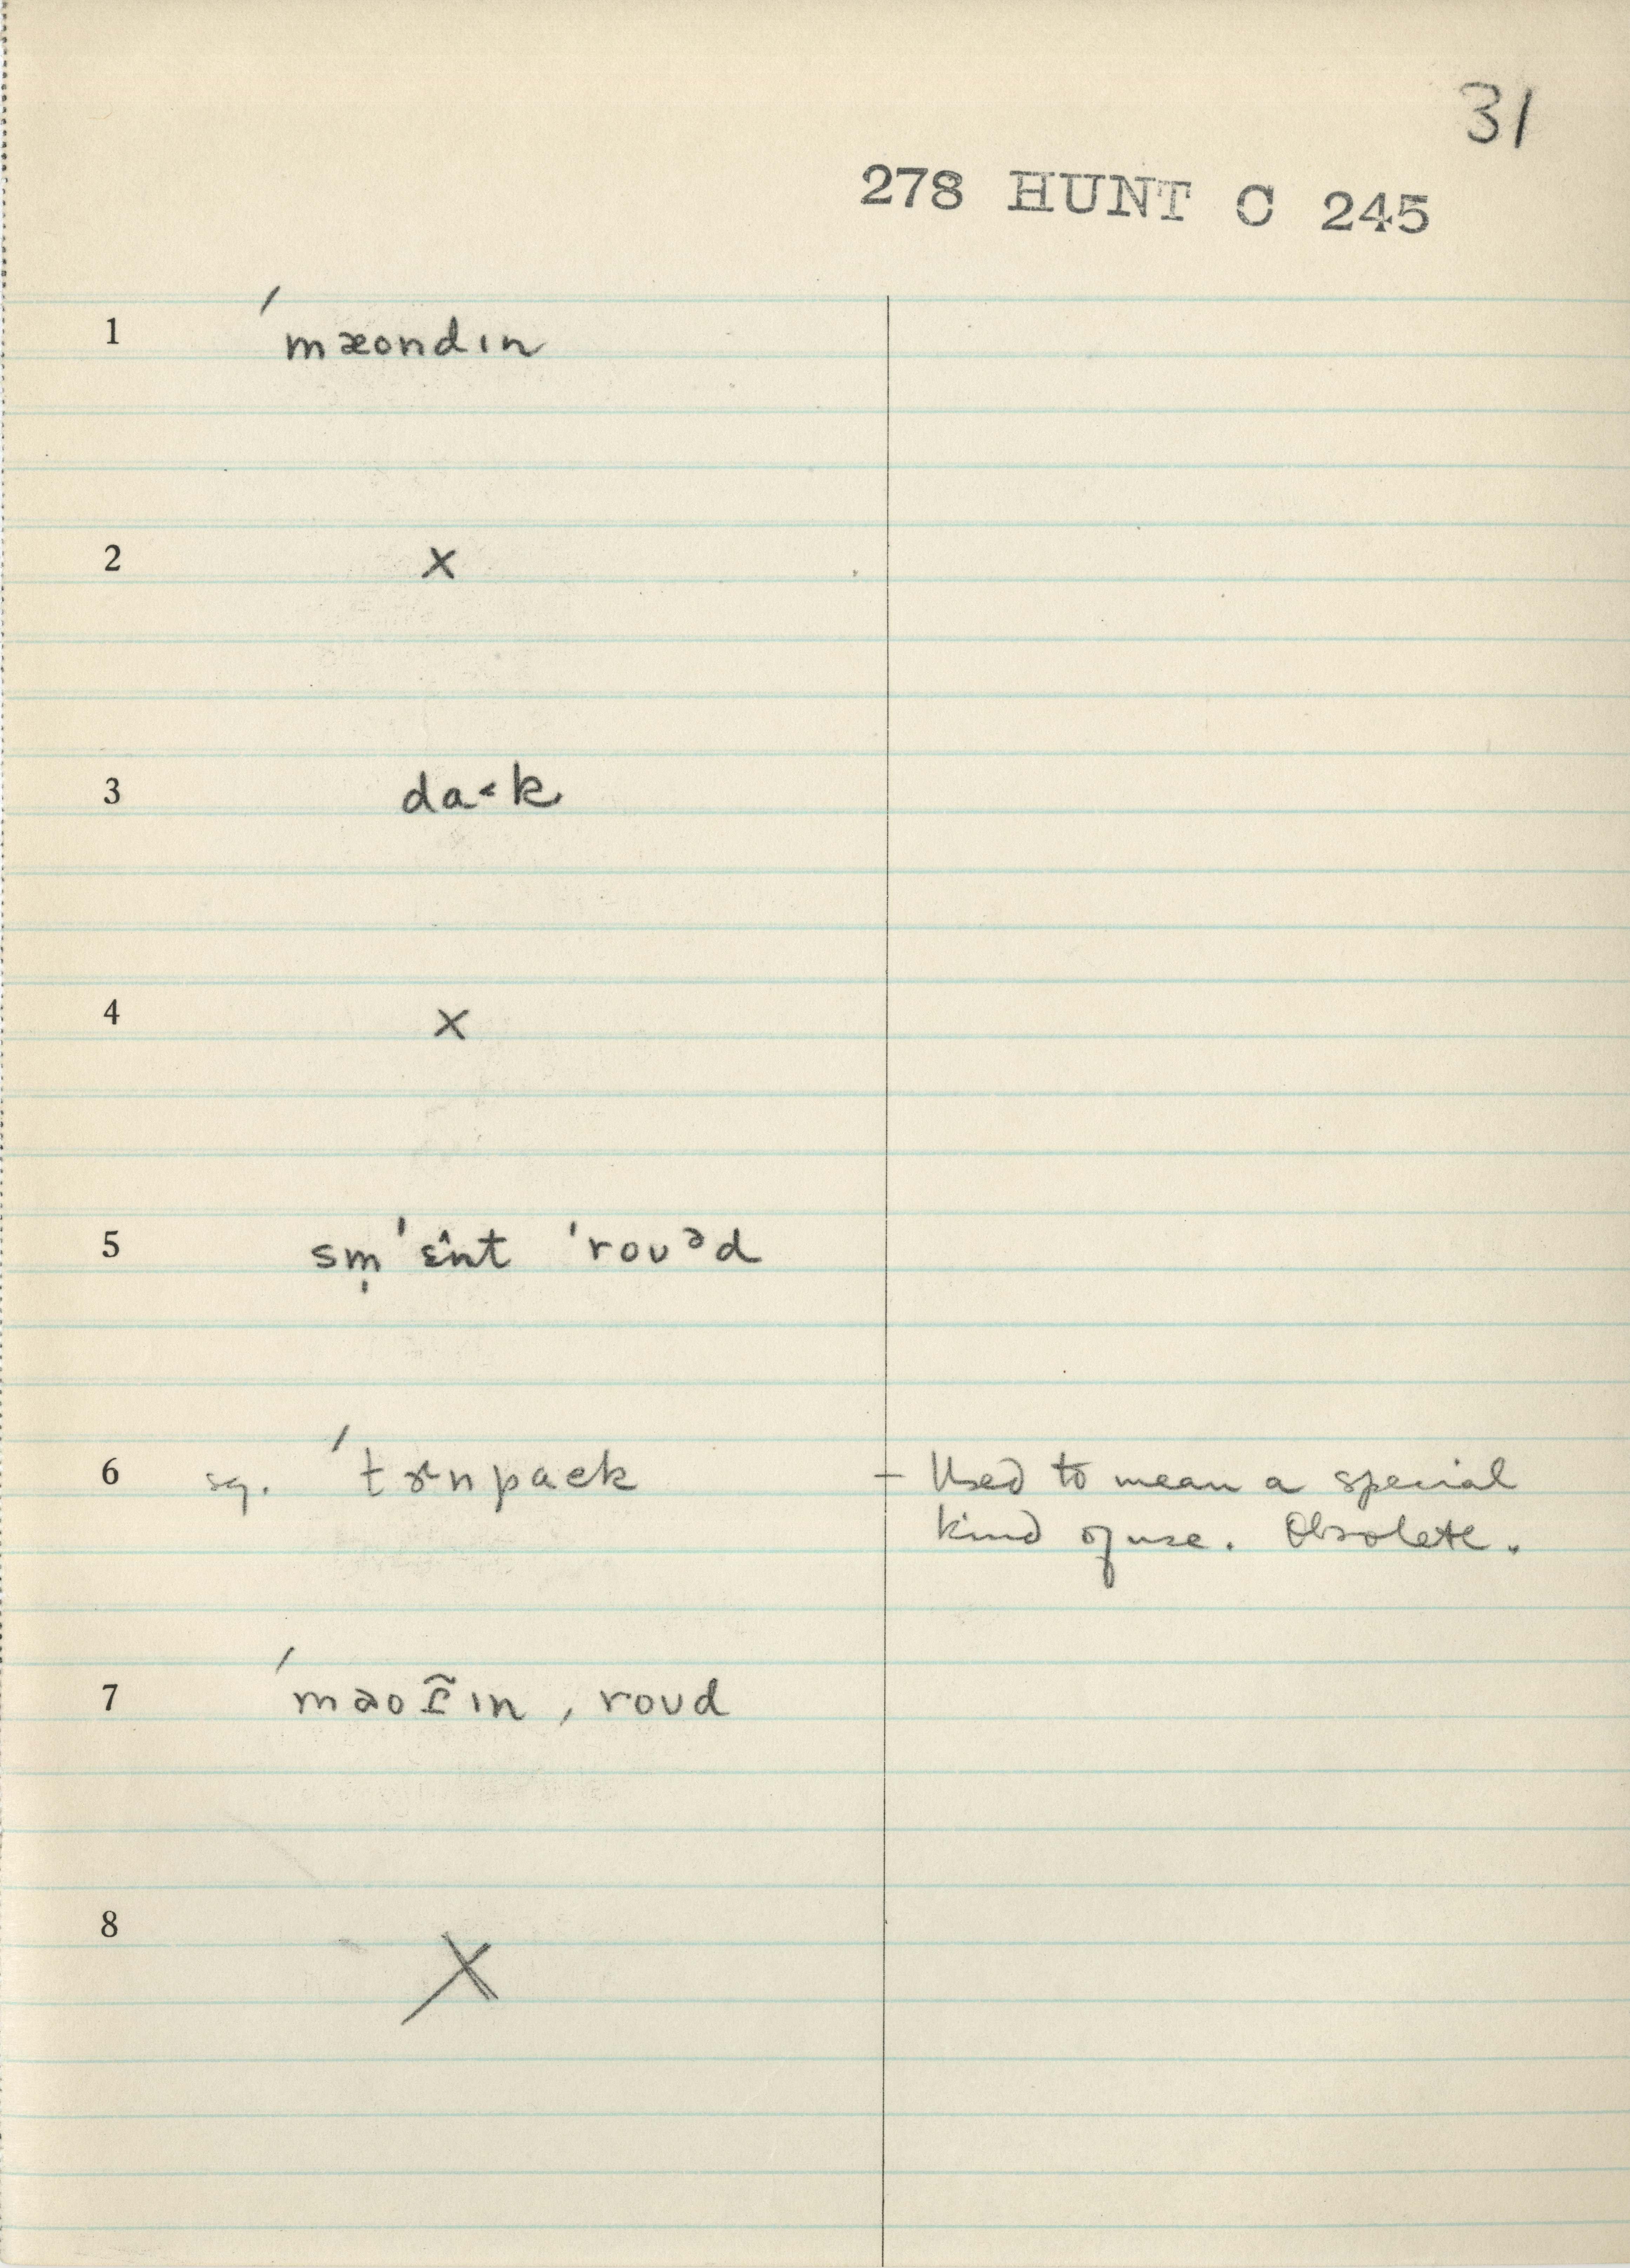 31
278 HUNT C 245
1 ˊmæondın
2 x
3 da˂k
4 x
5 sm̩ ˈɛ̂nt ˈroᴜᵊd
6 sg. ˊtɚnpaek – Used to mean a special
kind of use. Obsolete.
7 , roᴜd
8 X